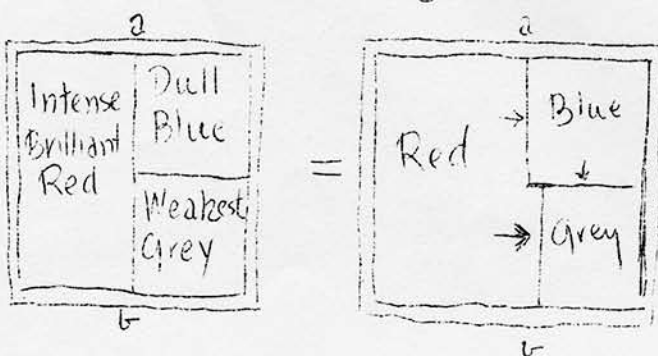 a
Intense
Brilliant
Red
Dull
Blue
Weakest
Grey
b
=
a
Red
Blue
Grey
b